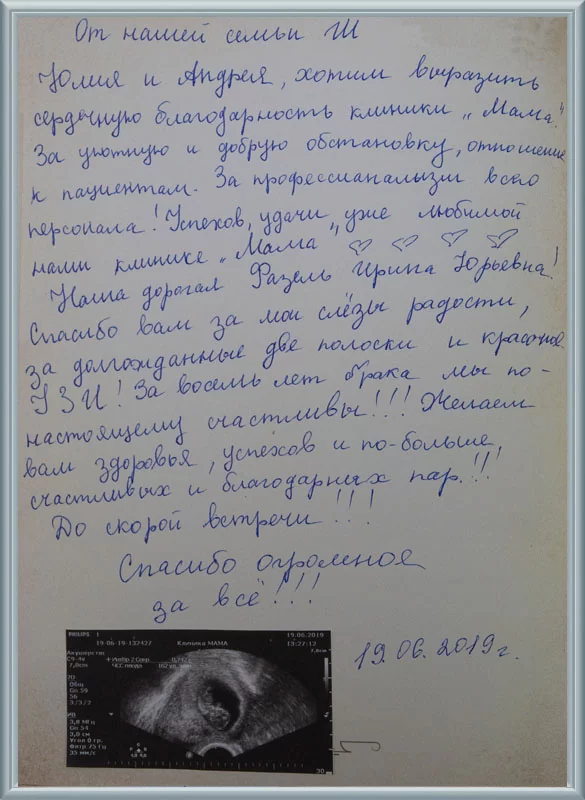 От нашей семьи Ш
Юлия и Андрея, хотим выразить
сердечную благодарность клиники „Мама".
За уютную и добрую обстановку, отношение
к пациентам. За профессианализм всего
персонала! Успехов, удачи, уже любимой
нами клинике „Мама"
Наша дорогая Фазель Ирина Юрьевна!
Спасибо вам за мои слёзы радости,
за долгожданные две полоски и красочное
УЗИ! За восемь лет брака мы по-
настоящему счастливы!!! Желаем
вам здоровья, успехов и по-больше,
счастливых и благодарных пар!!!
До скорой встречи!!!
Спасибо огромное
за всё!!!
19.06.2019г.
PHILIPS
19-06-19-132427 Клиника МАМА 19.06.2019
13:27:12
Акушерство
C9-4v
7,0cm
2D
Общ
Gn 50
56
3/3/2
3,8 МГц
Gn 54
3,0 см
Угол 0 гр.
Фильтр 75 Гц
35 мм/с